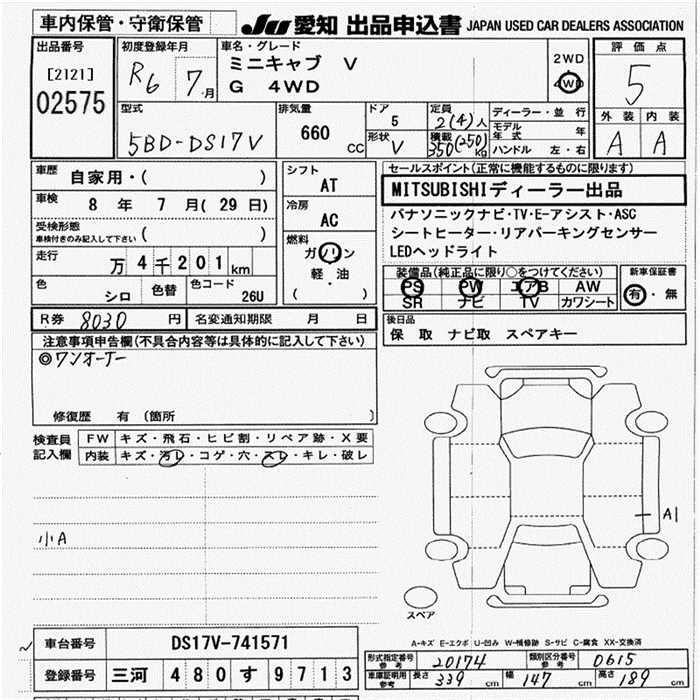 車内保管・守衛保管 JU 愛知 出品申込書 JAPAN USED CAR DEALERS ASSOCIATION
出品番号 [2121] 02575
初度登録年月 R6 7月
車名・グレード ミニキャブ V
G 4WD
2WD
4WD
評価点 5
外装 内装
A A
型式 5BD-DS17V
排気量 660 CC
ドア 5
形状 V
定員 2(4)人
積載 350(250)kg
ディーラー・並行
モデル年式 年
ハンドル 左・右
車歴 自家用・( )
車検 8年 7月(29日)
受検形態
車検付きのみ記入して下さい ( )
走行 万4千201km
色 シロ 色替 色コード 26U
シフト AT
冷房 AC
燃料 ガソリン
軽・油
( )
R券 8030円 名変通知期限 月 日
セールスポイント(正常に機能するものに限る)
MITSUBISHIディーラー出品
パナソニックナビ・TV・E-アシスト・ASC
シートヒーター・リアパーキングセンサー
LEDヘッドライト
装備品(純正品に限り○をつけてください)
PS PW エアB AW
SR ナビ TV カワシート
新車保証書
有・無
後日品
保 取 ナビ取 スペアキー
注意事項申告欄(不具合内容等は具体的に記入して下さい)
◎ワンオーナー
修復歴 有 (箇所 )
検査員記入欄
FW キズ・飛石・ヒビ割・リペア跡・X要
内装 キズ・汚レ・コゲ・穴・スレ・キレ・破レ
小A
A1
スペア
A-キズ E-エクボ U-凹み W-補修跡 S-サビ C-腐食 XX-交換済
車台番号 DS17V-741571
登録番号 三河 480 す 9713
形式指定番号 参考 20174 類別区分番号 参考 0615
車庫証明用参考 長さ 339cm 幅 147cm 高さ 189cm